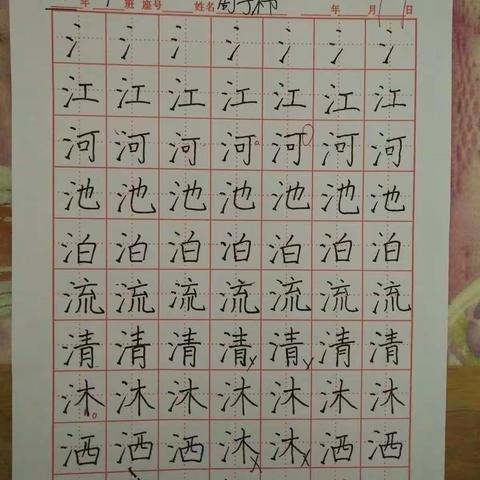 年 班 座号 姓名 年 月 日
氵 氵 氵 氵 氵 氵 氵
江 江 江 江 江 江 江
河 河 河 河 河 河 河
池 池 池 池 池 池 池
泊 泊 泊 泊 泊 泊 泊
流 流 流 流 流 流 流
清 清 清 清 清 清 清
沐 沐 沐 沐 沐 沐 沐
洒 洒 洒 沐 沐 洒 洒